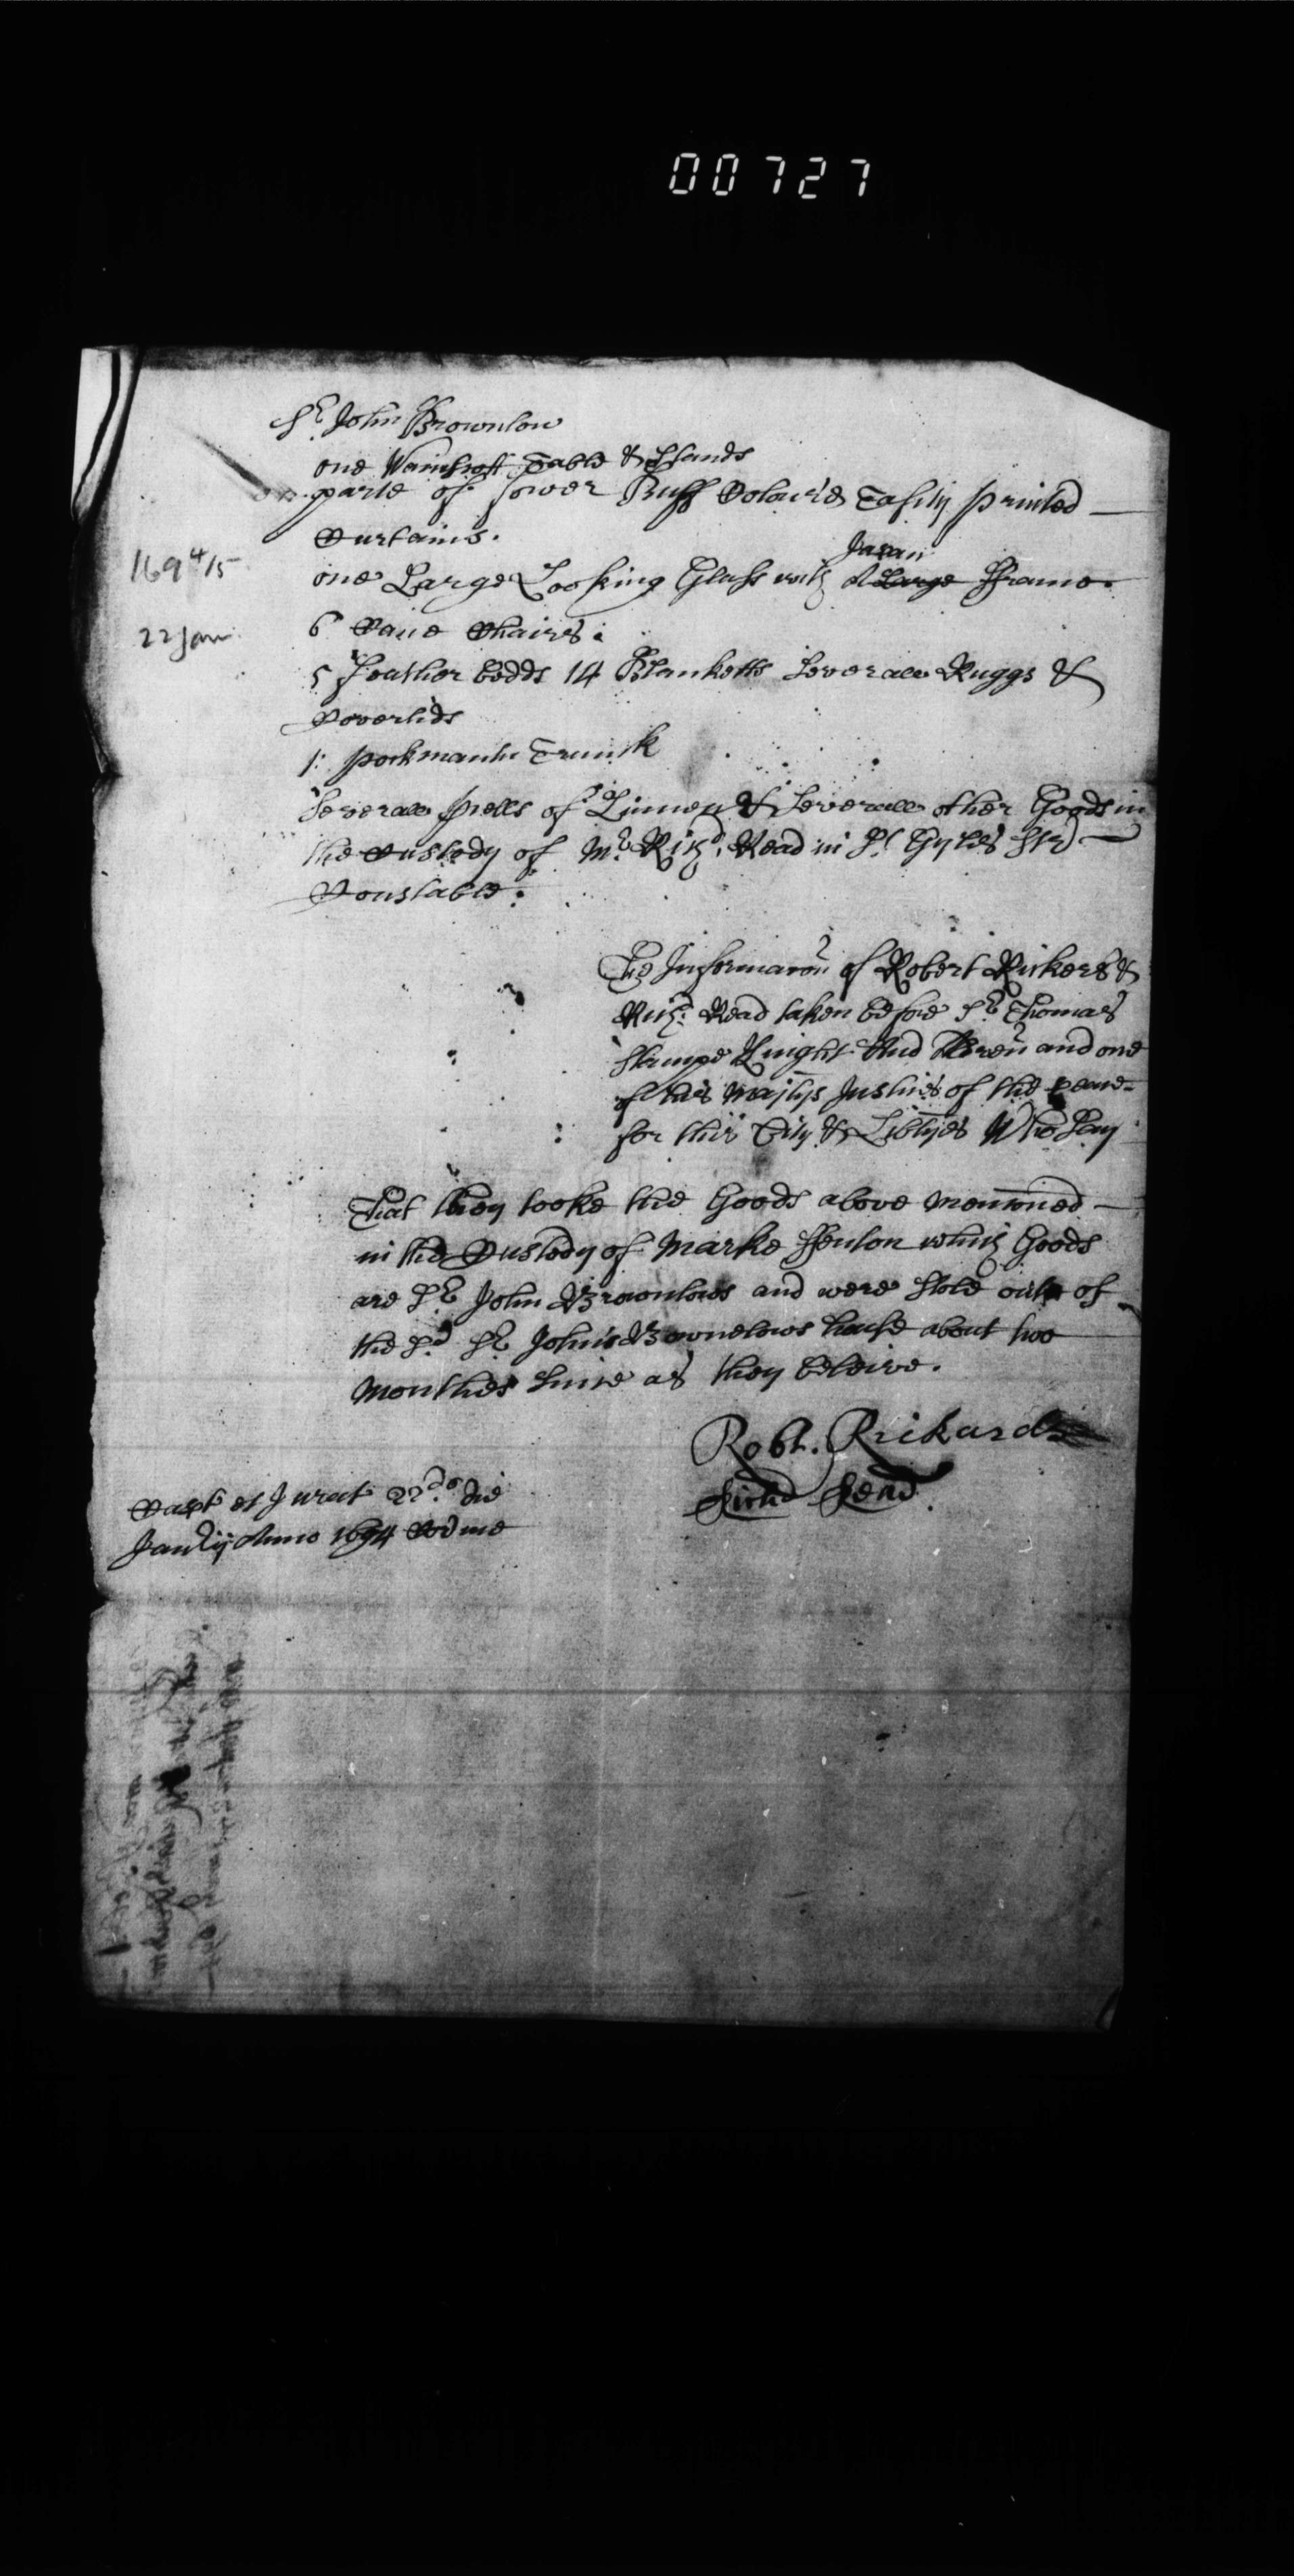 00727
Sr. John Brownlow
one Wainscott Table & Stands
parte of fower Buff Colour'd Tafity printed
Curtains.
1694/5
Japan
one Large Looking Glass with A Large fframe.
22 Jan
6 Caine Chaires.
5 Feather bedds 14 Blanketts Severall Ruggs &
Coverlids
1: portmantu Trunk
Severall peices of Linnen & Severall other Goods in
the Custody of Mr. Richd. Read in St. Gyles ffd
Constable.
The Informacon of Robert Rickers &
Richd. Read taken before Sr. Thomas
Stampe Knight And Alderm and one
of his Majtys Justices of the peace
for this City & Libtyes Who Say
That they tooke the Goods above mentioned
in the Custody of Marke ffenton which Goods
are Sr. John Brownlows and were stole out of
the Sd. Sr. John's Brownelows house about two
Monthes Since as they beleive.
Robt. Rickards
Richd Read
Capt et Jurat 22do. die
Janryij Anno 1694 Cor me